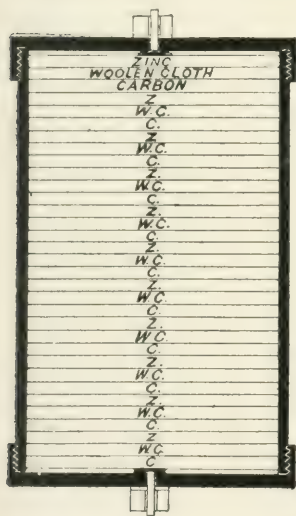 ZINC
WOOLEN CLOTH
CARBON
Z
W.C.
C.
Z
W.C.
C.
Z.
W.C.
C.
Z.
W.C.
C.
Z.
W.C.
C.
Z.
W.C.
C.
Z.
W.C.
C.
Z.
W.C.
C.
Z.
W.C.
C.
Z
W.C.
C